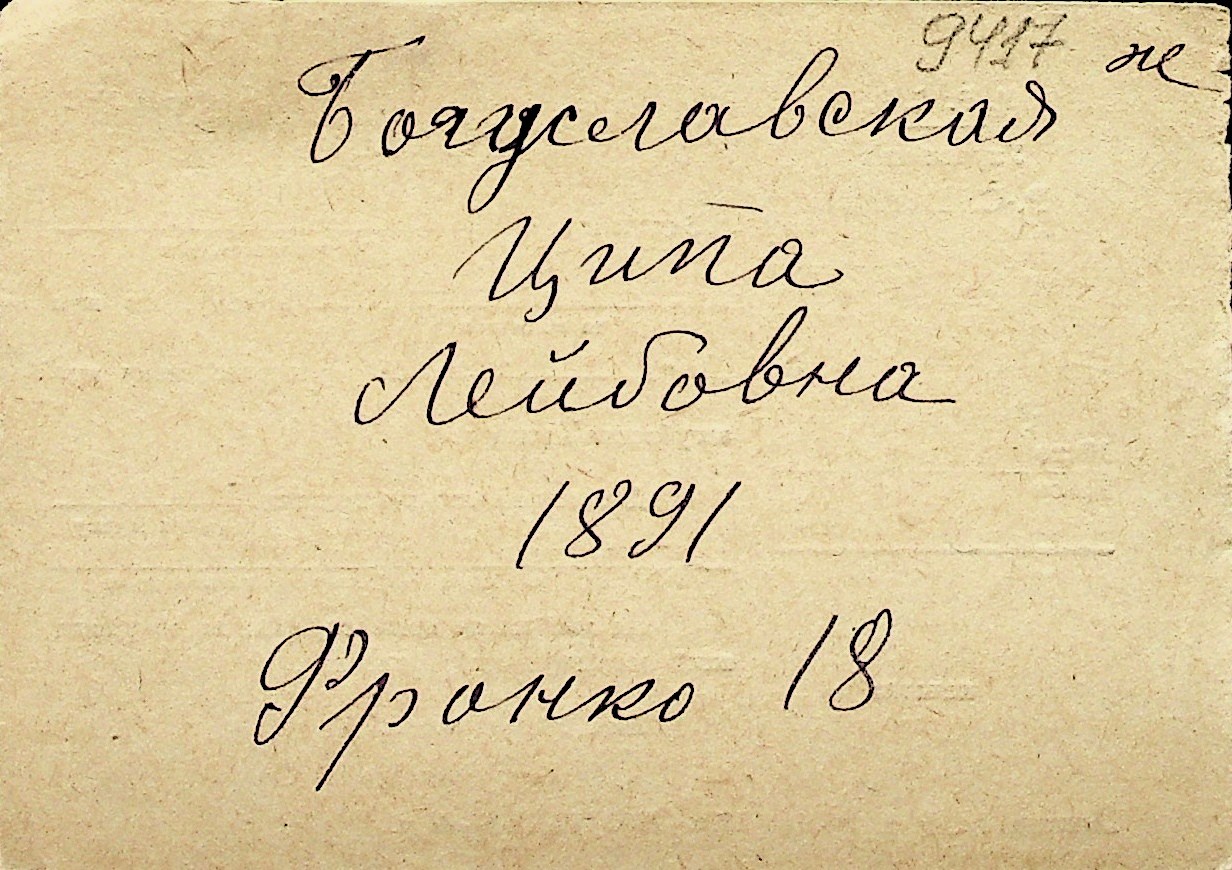 9417 ж
Богуславская
Ципа
Лейбовна
1891
Франко 18